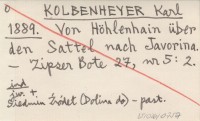 KOLBENHEYER Karl
1889. Von Höhlenhain über
den Sattel nach Javorina.
— Zipser Bote 27, nr 5: 2.
ind
św. +
Siedmiu Źródeł (Dolina do) – part.